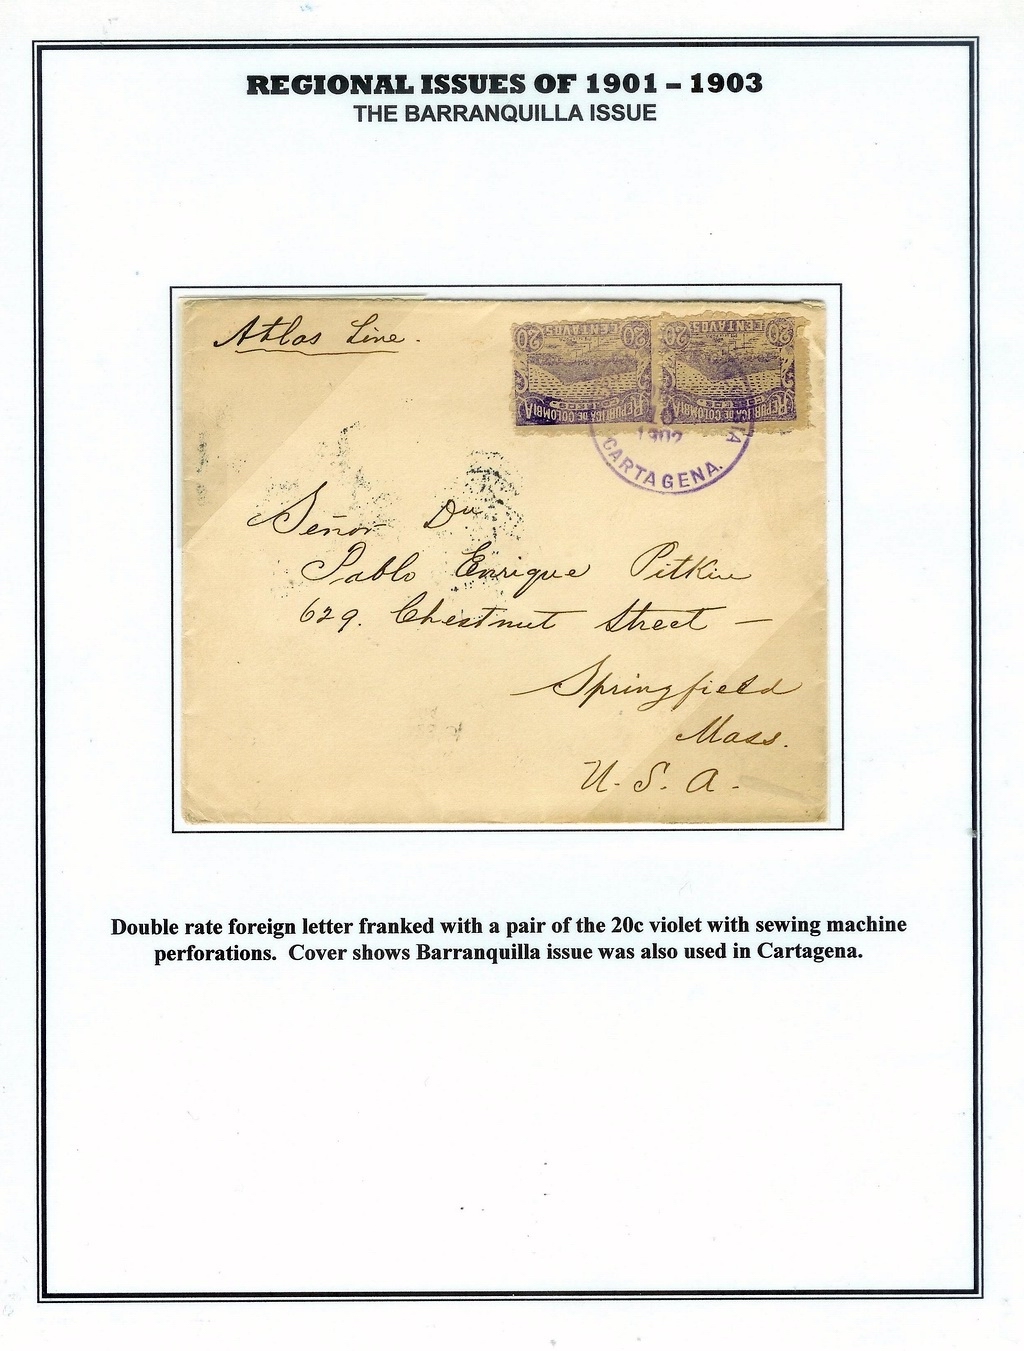 REGIONAL ISSUES OF 1901 – 1903
THE BARRANQUILLA ISSUE
Atlas Line.
20 CENTAVOS 20
REPUBLICA DE COLOMBIA
20 CENTAVOS 20
REPUBLICA DE COLOMBIA
1902
CARTAGENA.
Señor Dn
Pablo Enrique Pitkin
629. Chestnut Street —
Springfield
Mass.
U. S. A.
Double rate foreign letter franked with a pair of the 20c violet with sewing machine
perforations. Cover shows Barranquilla issue was also used in Cartagena.